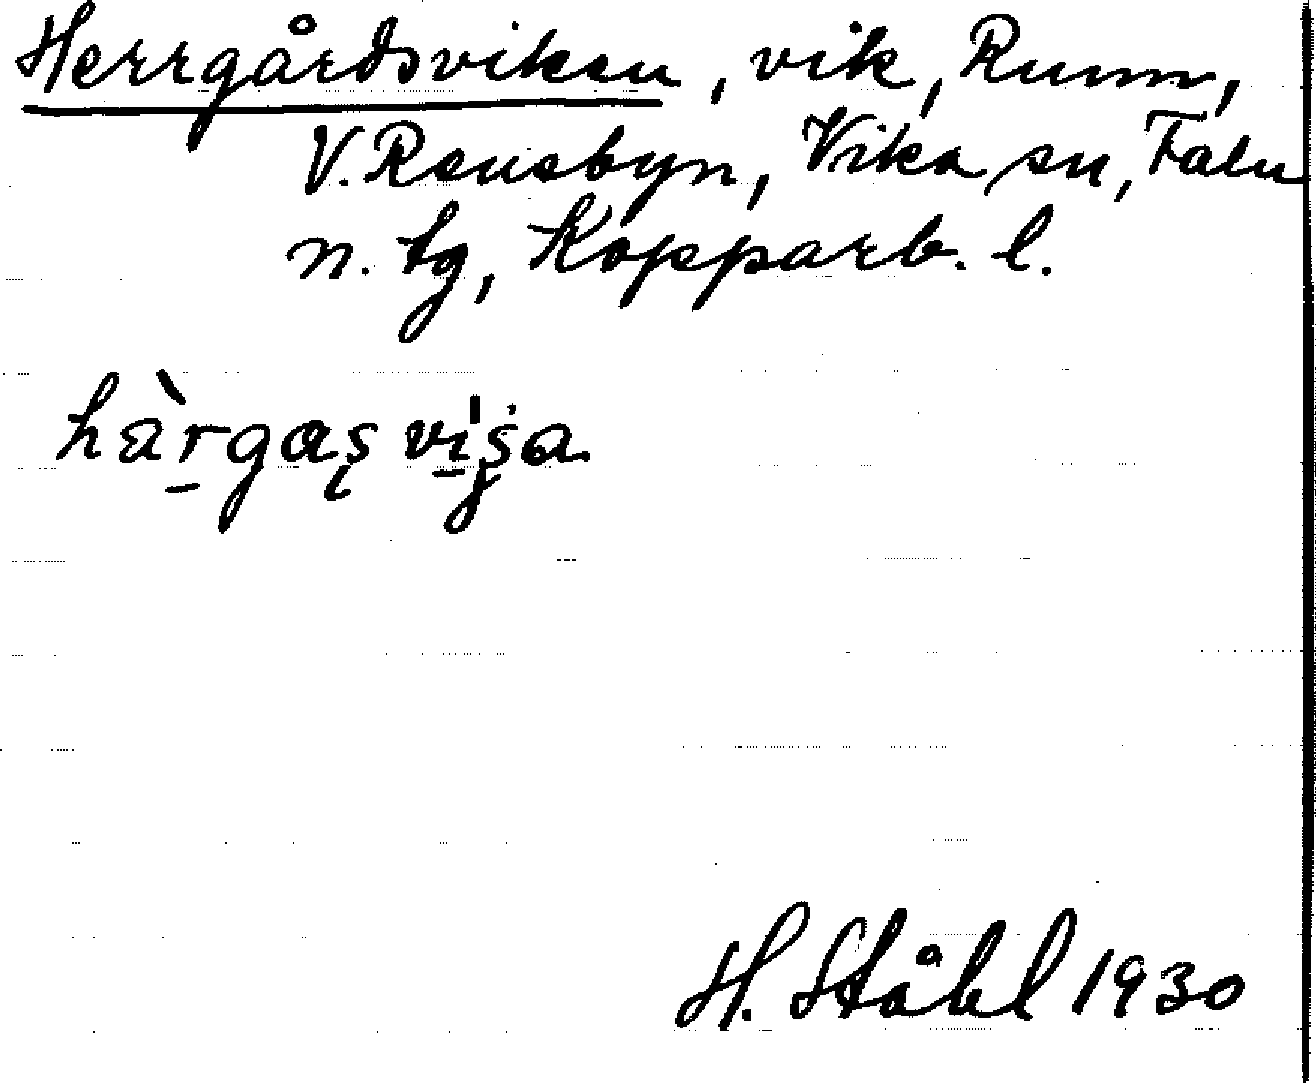 Herrgårdsviken, vik, Runn,
V. Rensbyn, Vika sn, Falu
n. tg, Kopparb. l.
hàrgas vi̍ja
H. Ståhl 1930